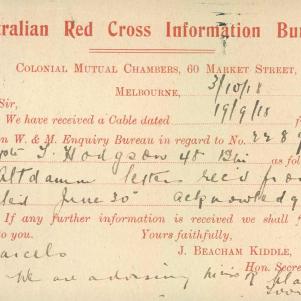 ralian Red Cross Information Bu
Colonial Mutual Chambers, 60 Market Street,
Melbourne, 3/10/18
Sir,
We have received a Cable dated 19/9/18 f
n W. & M. Enquiry Bureau in regard to No. 228
J. Hodgson 48 Bn as fol
Altdamm letter rec'd fro
June 30 acknowledg
If any further information is received we shall
Yours faithfully,
J. Beacham Kiddle,
Hon. Secre
parcels
We are advising